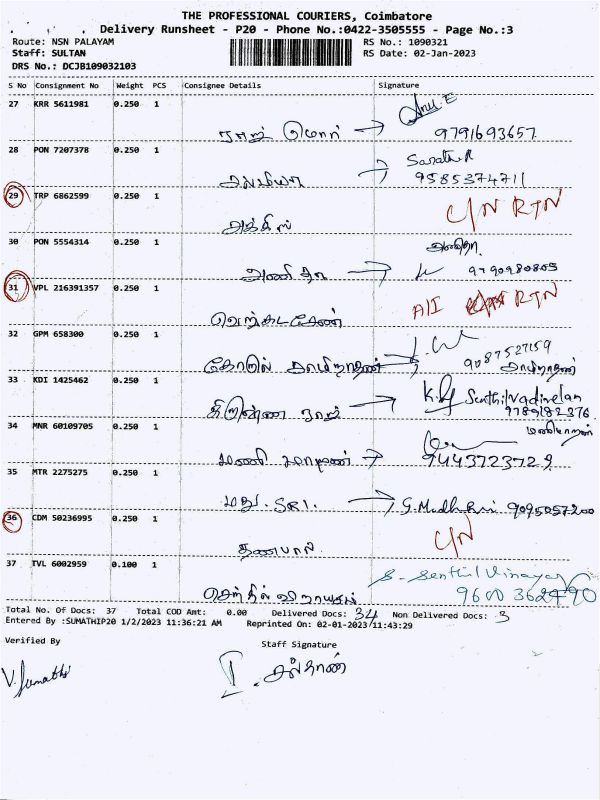 THE PROFESSIONAL COURIERS, Coimbatore
Delivery Runsheet - P20 - Phone No.:0422-3505555 - Page No.:3
Route: NSN PALAYAM RS No.: 1090321
Staff: SULTAN RS Date: 02-Jan-2023
DRS No.: DCJB109032103
S No Consignment No Weight PCS Consignee Details Signature
27 KRR 5611981 0.250 1
9791693657
28 PON 7207378 0.250 1 Sarathi R
9585374711
29 TRP 6862599 0.250 1 C/N RTN
30 PON 5554314 0.250 1 அனிதா
அனிதா 9790980805
31 VPL 216391357 0.250 1 A/I RTN
வெங்கடேசன்
32 GPM 658300 0.250 1
9087527159
33 KDI 1425462 0.250 1 Senthilvadivelan
9789182376
34 MNR 60109705 0.250 1
9443723729
35 MTR 2275275 0.250 1
மது. SRI. G. Madhu Sri 9095057200
36 CDM 50236995 0.250 1 C/N
தனபால்
37 TVL 6002959 0.100 1 S. Senthil Vinayag
9600362490
Total No. Of Docs: 37 Total COD Amt: 0.00 Delivered Docs: 34 Non Delivered Docs: 3
Entered By :SUMATHIP20 1/2/2023 11:36:21 AM Reprinted On: 02-01-2023/11:43:29
Verified By Staff Signature
V. Sumathi சுல்தான்